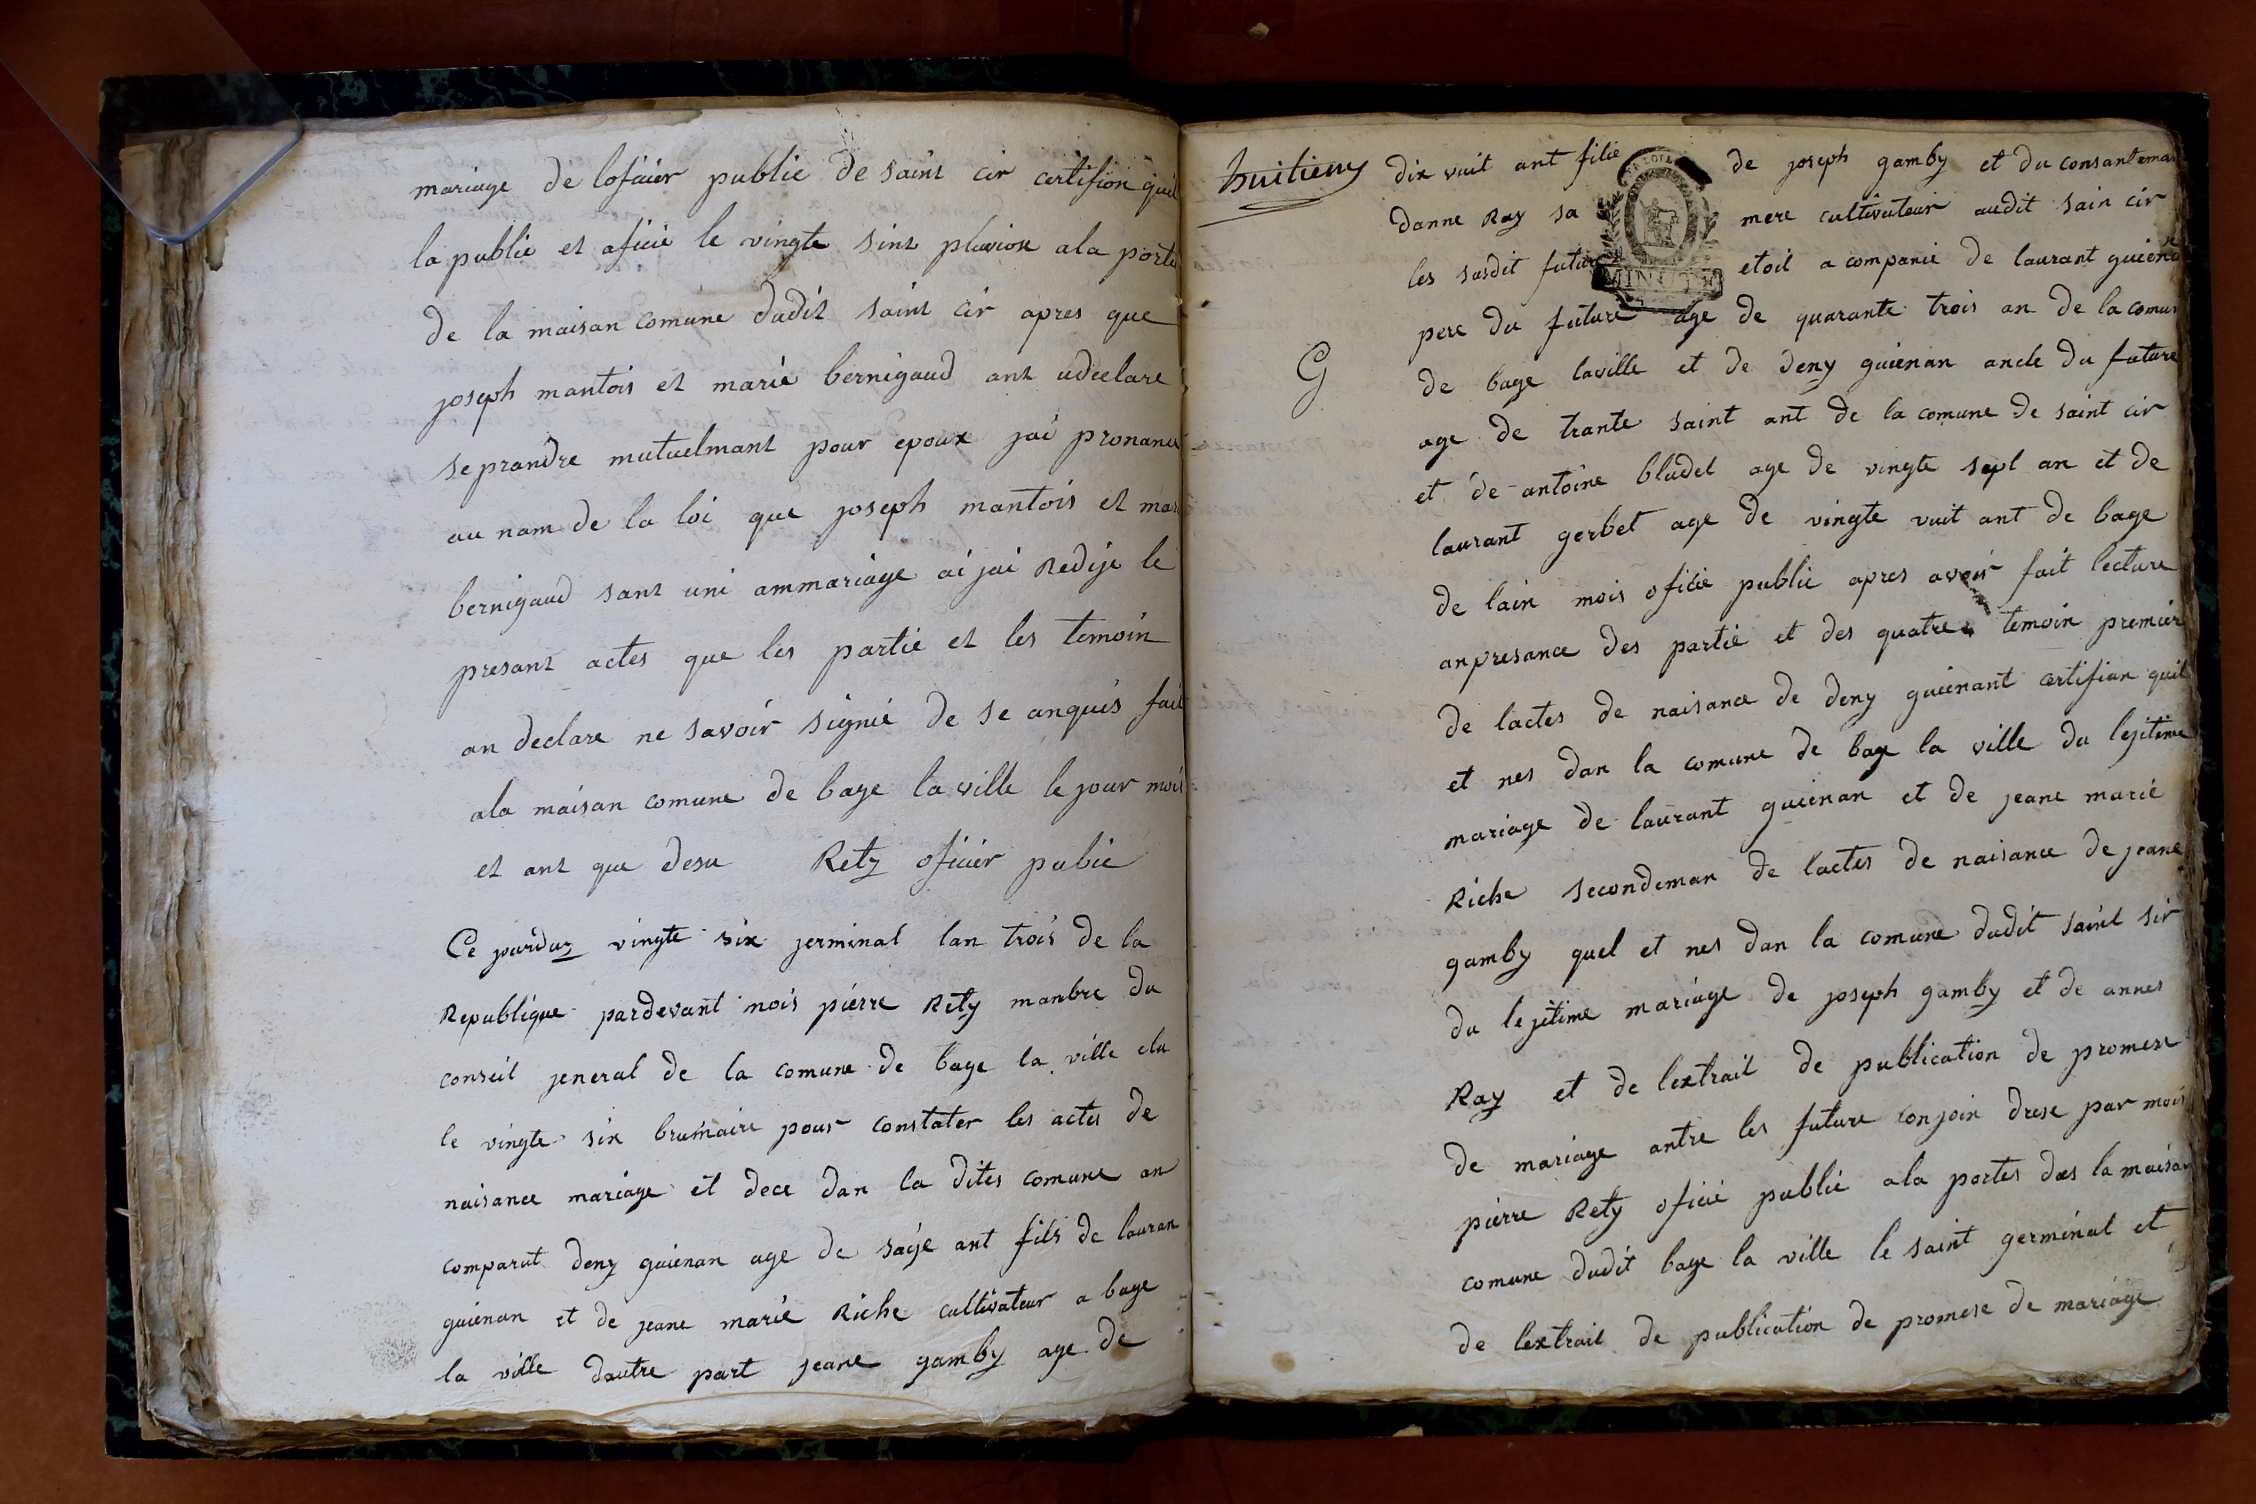 mariage de loficier public de saint cir certifion quil
la public et aficié le vingte sint pluviose ala porte
de la maison comune dudit saint cir apres que
joseph mantois et marie bernigaud ant adeclare
seprandre mutuelmant pour epoux jai pronance
au nam de la loi que joseph mantois et mari
bernigaud sant uni ammariage ai jai Redije le
presant actes que les partie et les temoin
an declare ne savoir signié de se anquis fait
ala maisan comune de bage la ville le jour mois
et ant que desu Rety oficier pubic
Ce jourduy vingte six jerminal lan trois de la
Republique pardevant mois pierre Rety manbre du
conseil jeneral de la comune de bage la ville elu
le vingte six brumaire pour constater les actes de
naisance mariage et dece dan la dites comune an
comparut deny guienan age de saije ant fils de lauran
guienan et de jeane marie Riche cultivateur a bage
la ville dautre part jeane gamby age de
huitieny
dix vuit ant filie de joseph gamby et du consanteman
danne Ray sa mere cultivateur audit sain cir
les susdit future etoil a companié de laurant guienan
MINUTE
pere du future age de quarante trois an de la comun
G
de bage laville et de deny guienan ancle du future
age de trante saint ant de la comune de saint cir
et de antoine bludel age de vingte sept an et de
laurant gerbet age de vingte vuit ant de bage
de lain mois oficie public apres avoir fait lecture
anpresance des partie et des quatre temoin premier
de lactes de naisance de deny guienant certifian quil
et nes dan la comune de bage la ville du lejitime
mariage de laurant guienan et de jeane marie
Riche secondeman de lactes de naisance de jeane
gamby quel et nes dan la comune dudit saint sir
du lejitime mariage de joseph gamby et de annes
Ray et de lextrait de publication de promese
de mariage antre les future conjoin drese par mois
pierre Rety oficié public ala portes des la maisan
comune dudit bage la ville le saint germinal et
de lextrait de publication de promese de mariage